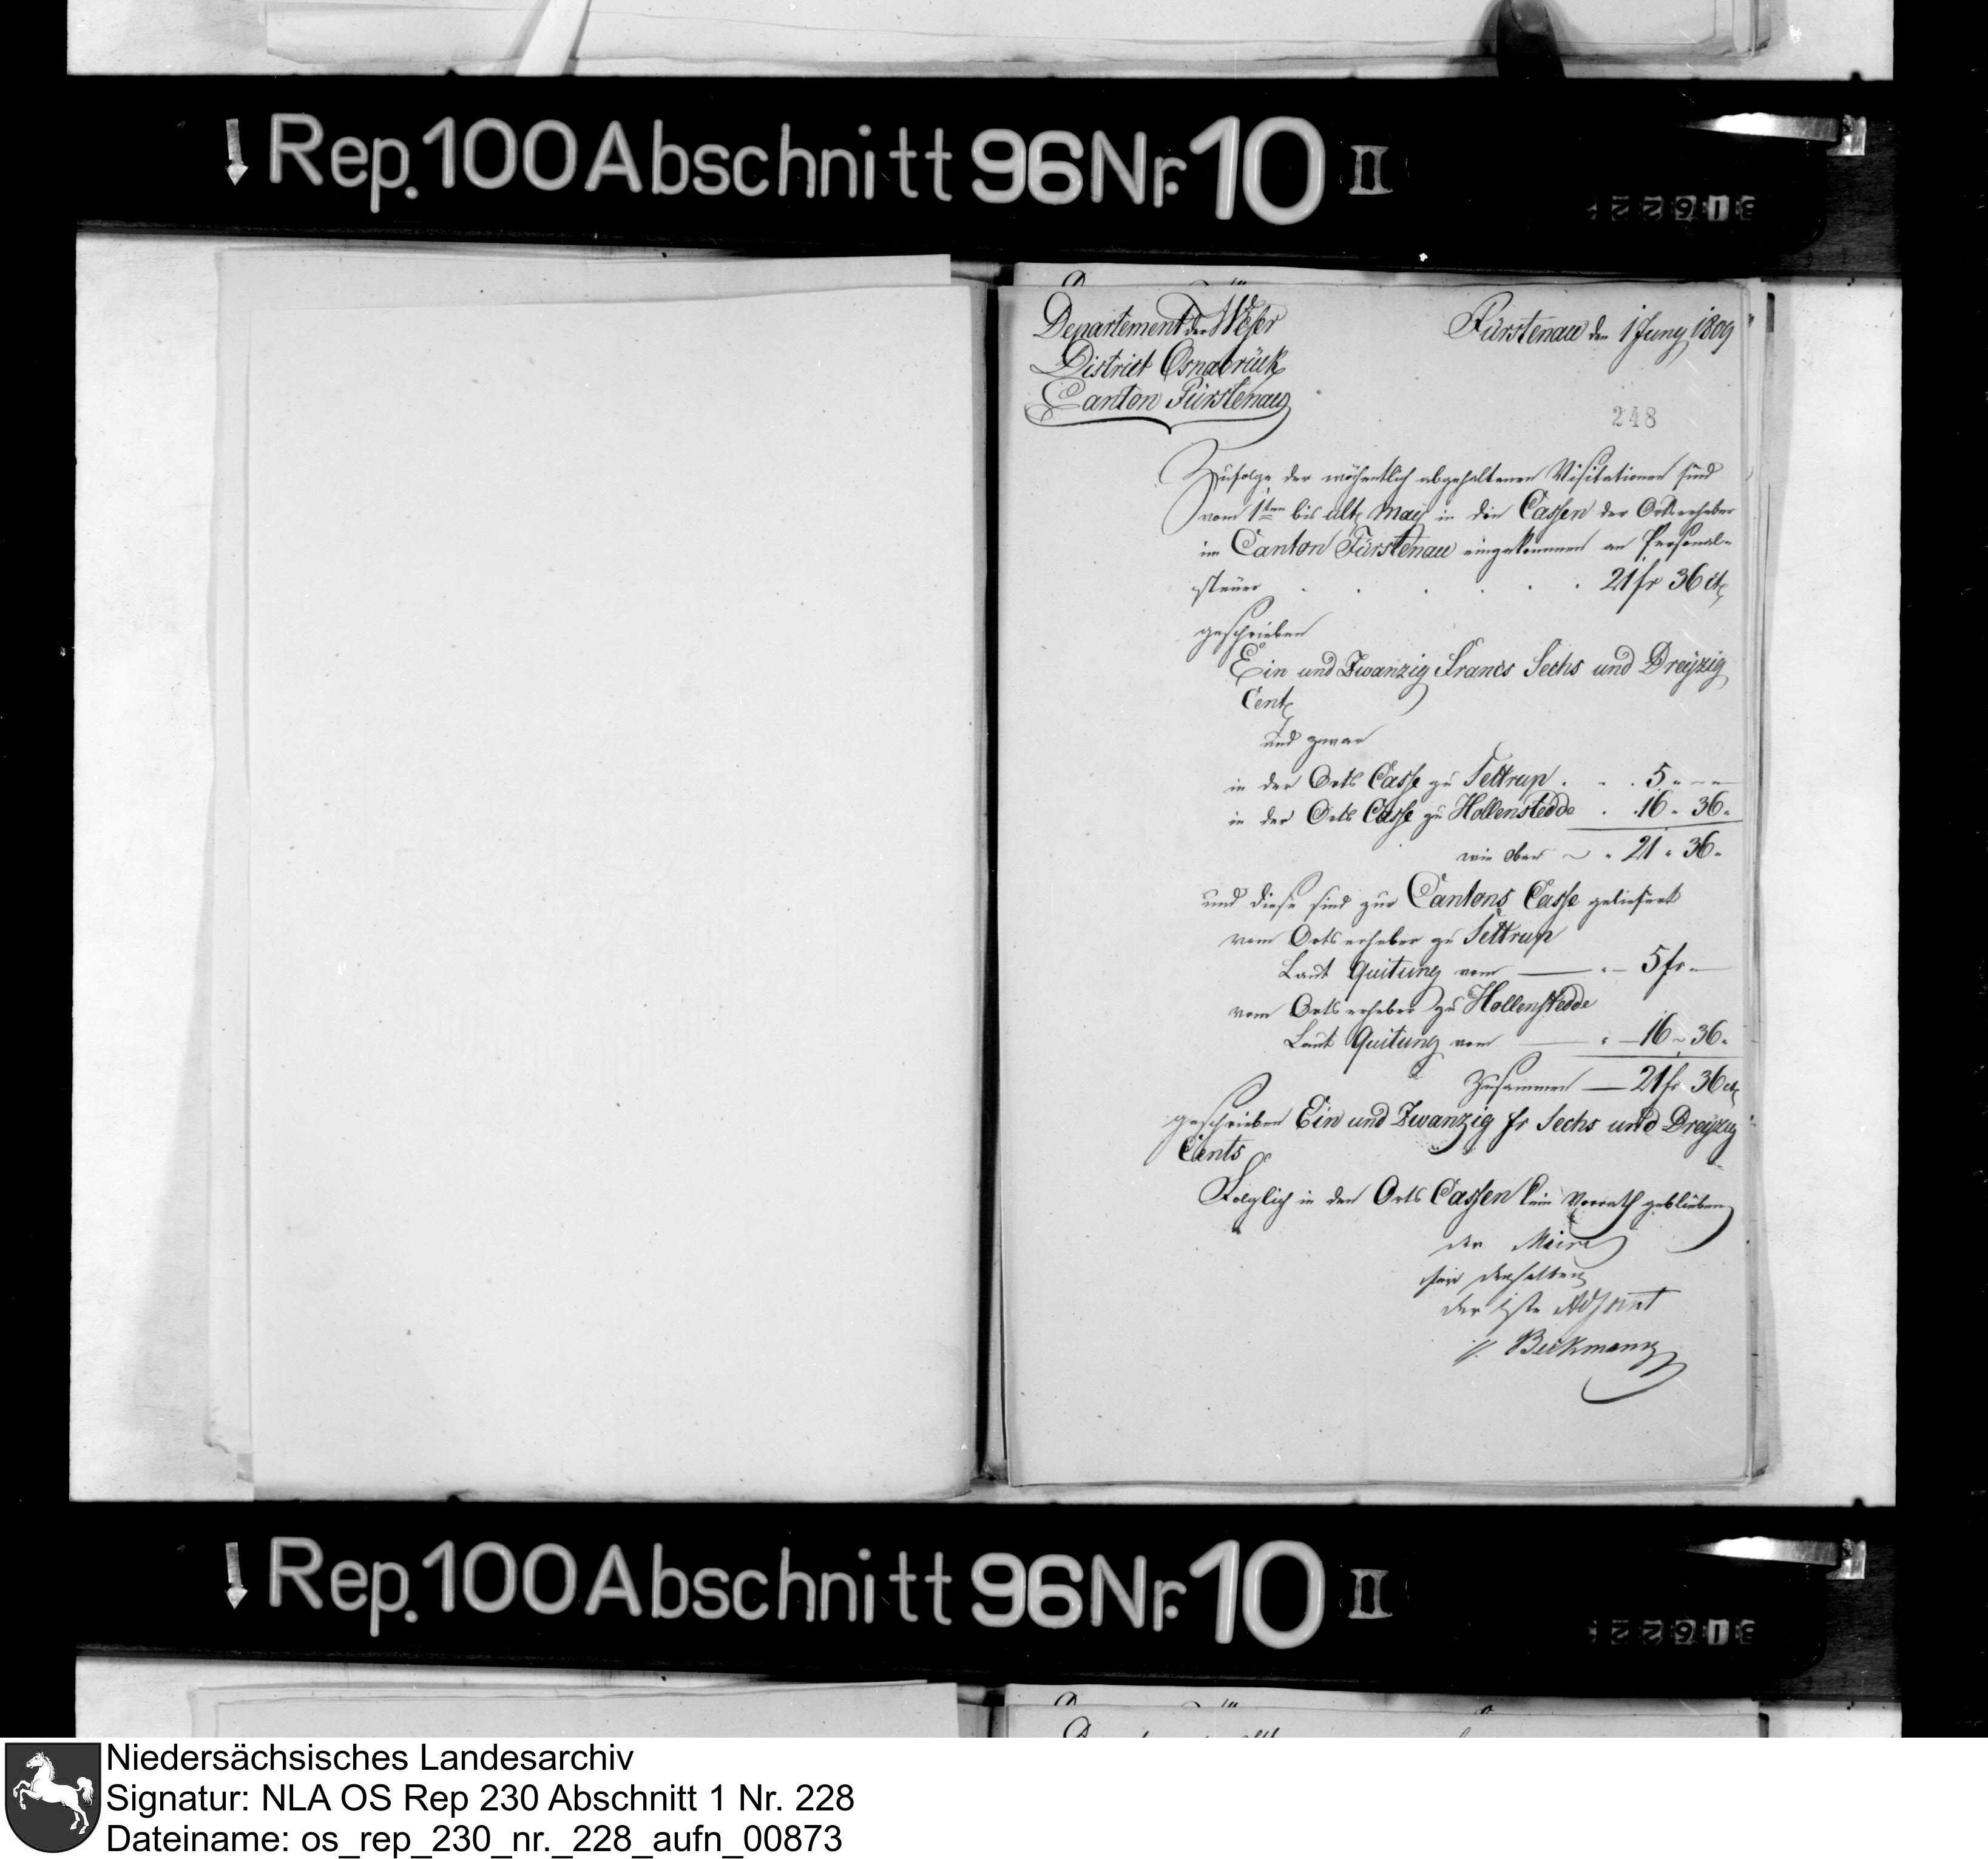 Rep. 100 Abschnitt 96 Nr. 10 II
Departement der Weser
District Osnabrück
Canton Fürstenau
Fürstenau den 1 Juny 1809
248
Zufolge der wöchentlich abgehaltenen Visitationen sind
vom 1ten bis ult. May in den Cassen der Ortserheber
im Canton Fürstenau eingekommen an Personal-
steuer . . . . . . 21 fr 36 ct
geschrieben
Ein und Zwanzig Francs Sechs und Dreyzig
Cent
und zwar
in der Orts Casse zu Settrup . . . 5 " — —
in der Orts Casse zu Hollenstedde . . 16 " 36 "
wie oben ~ " 21 " 36 "
und diese sind zur Cantons Casse geliefert
vom Ortserheber zu Settrup
Laut Quitung vom — " — 5 fr " —
vom Ortserheber zu Hollenstedde
Laut Quitung vom — " — 16 ~ 36 "
Zusammen — 21 fr 36 ct
geschrieben Ein und Zwanzig fr Sechs und Dreyzig
Cents
Folglich in den Orts Cassen kein Vorrath geblieben
der Maire
für denselben
der 1ste Adjoint
Beckmann
Rep. 100 Abschnitt 96 Nr. 10 II
Niedersächsisches Landesarchiv
Signatur: NLA OS Rep 230 Abschnitt 1 Nr. 228
Dateiname: os_rep_230_nr._228_aufn_00873